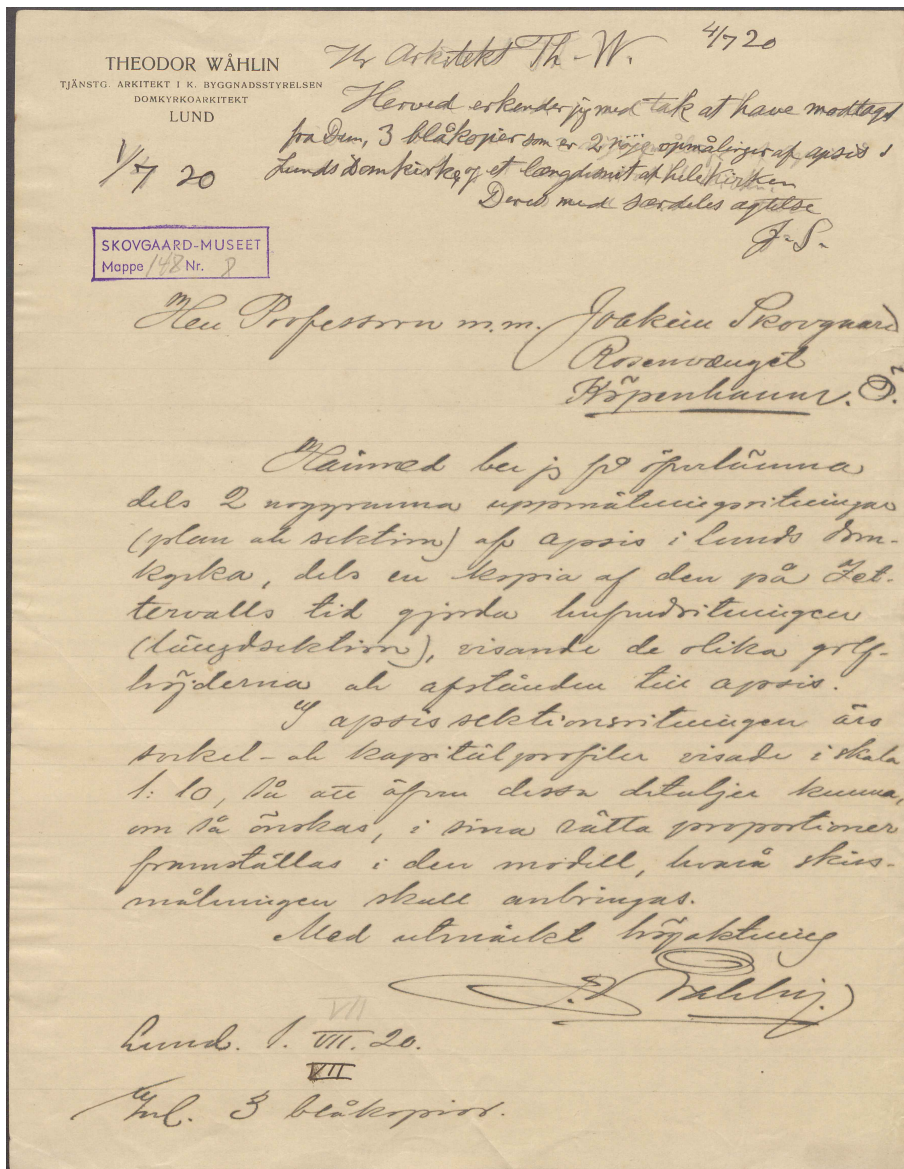 THEODOR WÅHLIN
TJÄNSTG. ARKITEKT I K. BYGGNADSSTYRELSEN
DOMKYRKOARKITEKT
LUND
1/7 20
4/7 20
Hr Arkitekt Th-W.
Herved erkender jeg med tak at have modtaget
fra Dem, 3 blåkopier som er 2 nöje opmålinger af apsis i
Lunds Domkirke, og et længdesnit af hele kirken
Deres med særdeles agtelse
J-S-
SKOVGAARD-MUSEET
Mappe 148 Nr. 8
Herr Professorn m.m. Joakim Skovgaard
Rosenvænget
Köpenhamn. Ö.
Härmed ber jg få öfverlämna
dels 2 noggranna uppmätningsritningar
(plan och sektion) af apsis i Lunds dom-
kyrka, dels en kopia af den på Zet-
tervalls tid gjorda hufvudritningen
(längdsektion), visande de olika golf-
höjderna och afstånden till apsis.
I apsissektionsritningen äro
sockel- och kapitälprofiler visade i skala
1:10, så att äfven dessa detaljer kunna,
om så önskas, i sina rätta proportioner
framställas i den modell, hvarå skiss-
målningen skall anbringas.
Med utmärkt högaktning
T. Wåhlin.
VII
Lund. 1. VII. 20.
VII
Inl. 3 blåkopior.